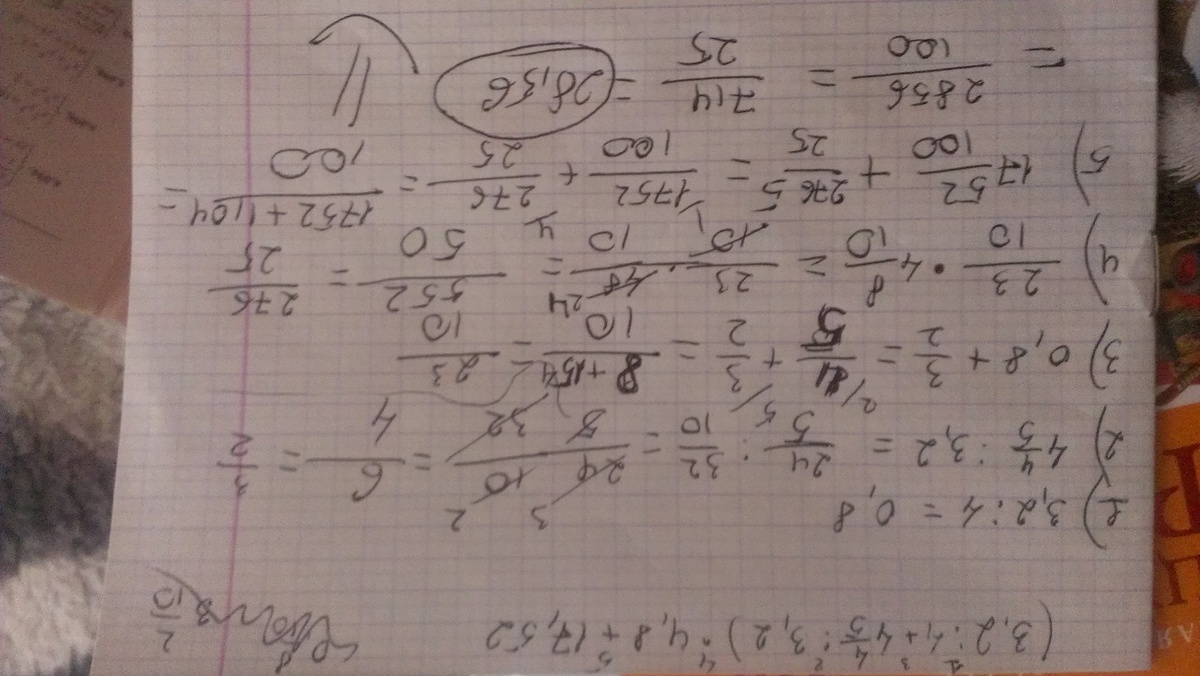 (3,2 : 4 + 4 4/5 : 3,2) · 4,8 + 17,52
1) 3,2 : 4 = 0,8
2) 4 4/5 : 3,2 = 24/5 : 32/10 = 24 10/5 32 = 6/4 = 3/2
3) 0,8 + 3/2 = 4/5 + 3/2 = 8+15/10 = 23/10
4) 23/10 · 4 8/10 = 23/10 · 48/10 = 552/50 = 276/25
5) 17 52/100 + 276/25 = 1752/100 + 276/25 = 1752+1104/100 =
= 2856/100 = 714/25 = 28,56